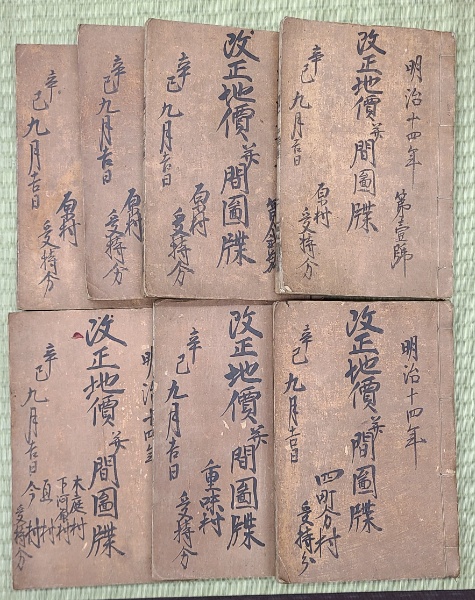 明治十四年 第壹號
改正地價并間圖牒
辛巳九月吉日
原村
受持分
改正地價并間圖牒
辛巳九月吉日
原村
受持分
辛巳九月吉日
原村
受持分
辛巳九月吉日
原村
受持分
明治十四年
改正地價并間圖牒
辛巳九月吉日
四町分村
受持分
改正地價并間圖牒
辛巳九月吉日
重味村
受持分
明治十四年
改正地價并間圖牒
辛巳九月吉日
木庭村
下河原村
亘村
今村
受持分